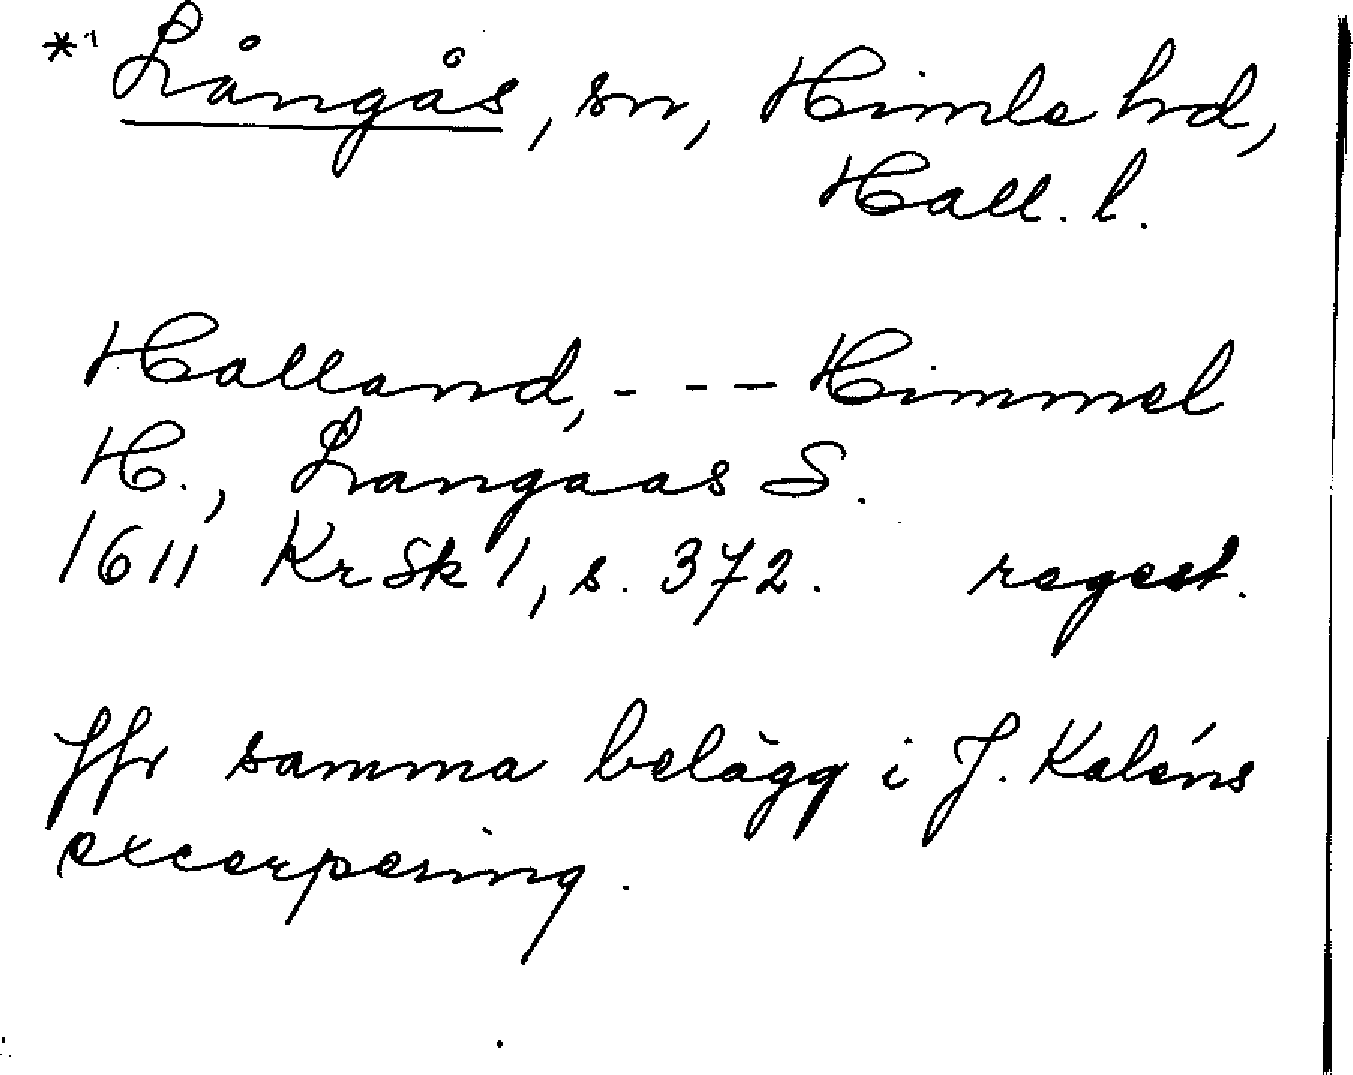 *1 Långås, sn, Himle hd,
Hall. l.
Halland, - - - Himmel
H., Langaas S.
1611 KrSk 1, s. 372. regest.
Jfr samma belägg i J. Kaléns
excerpering.